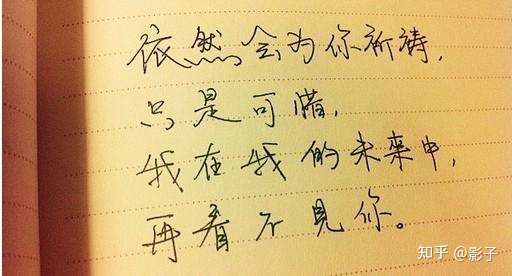 依然会为你祈祷，
只是可惜，
我在我的未来中，
再看不見你。
知乎 @影子